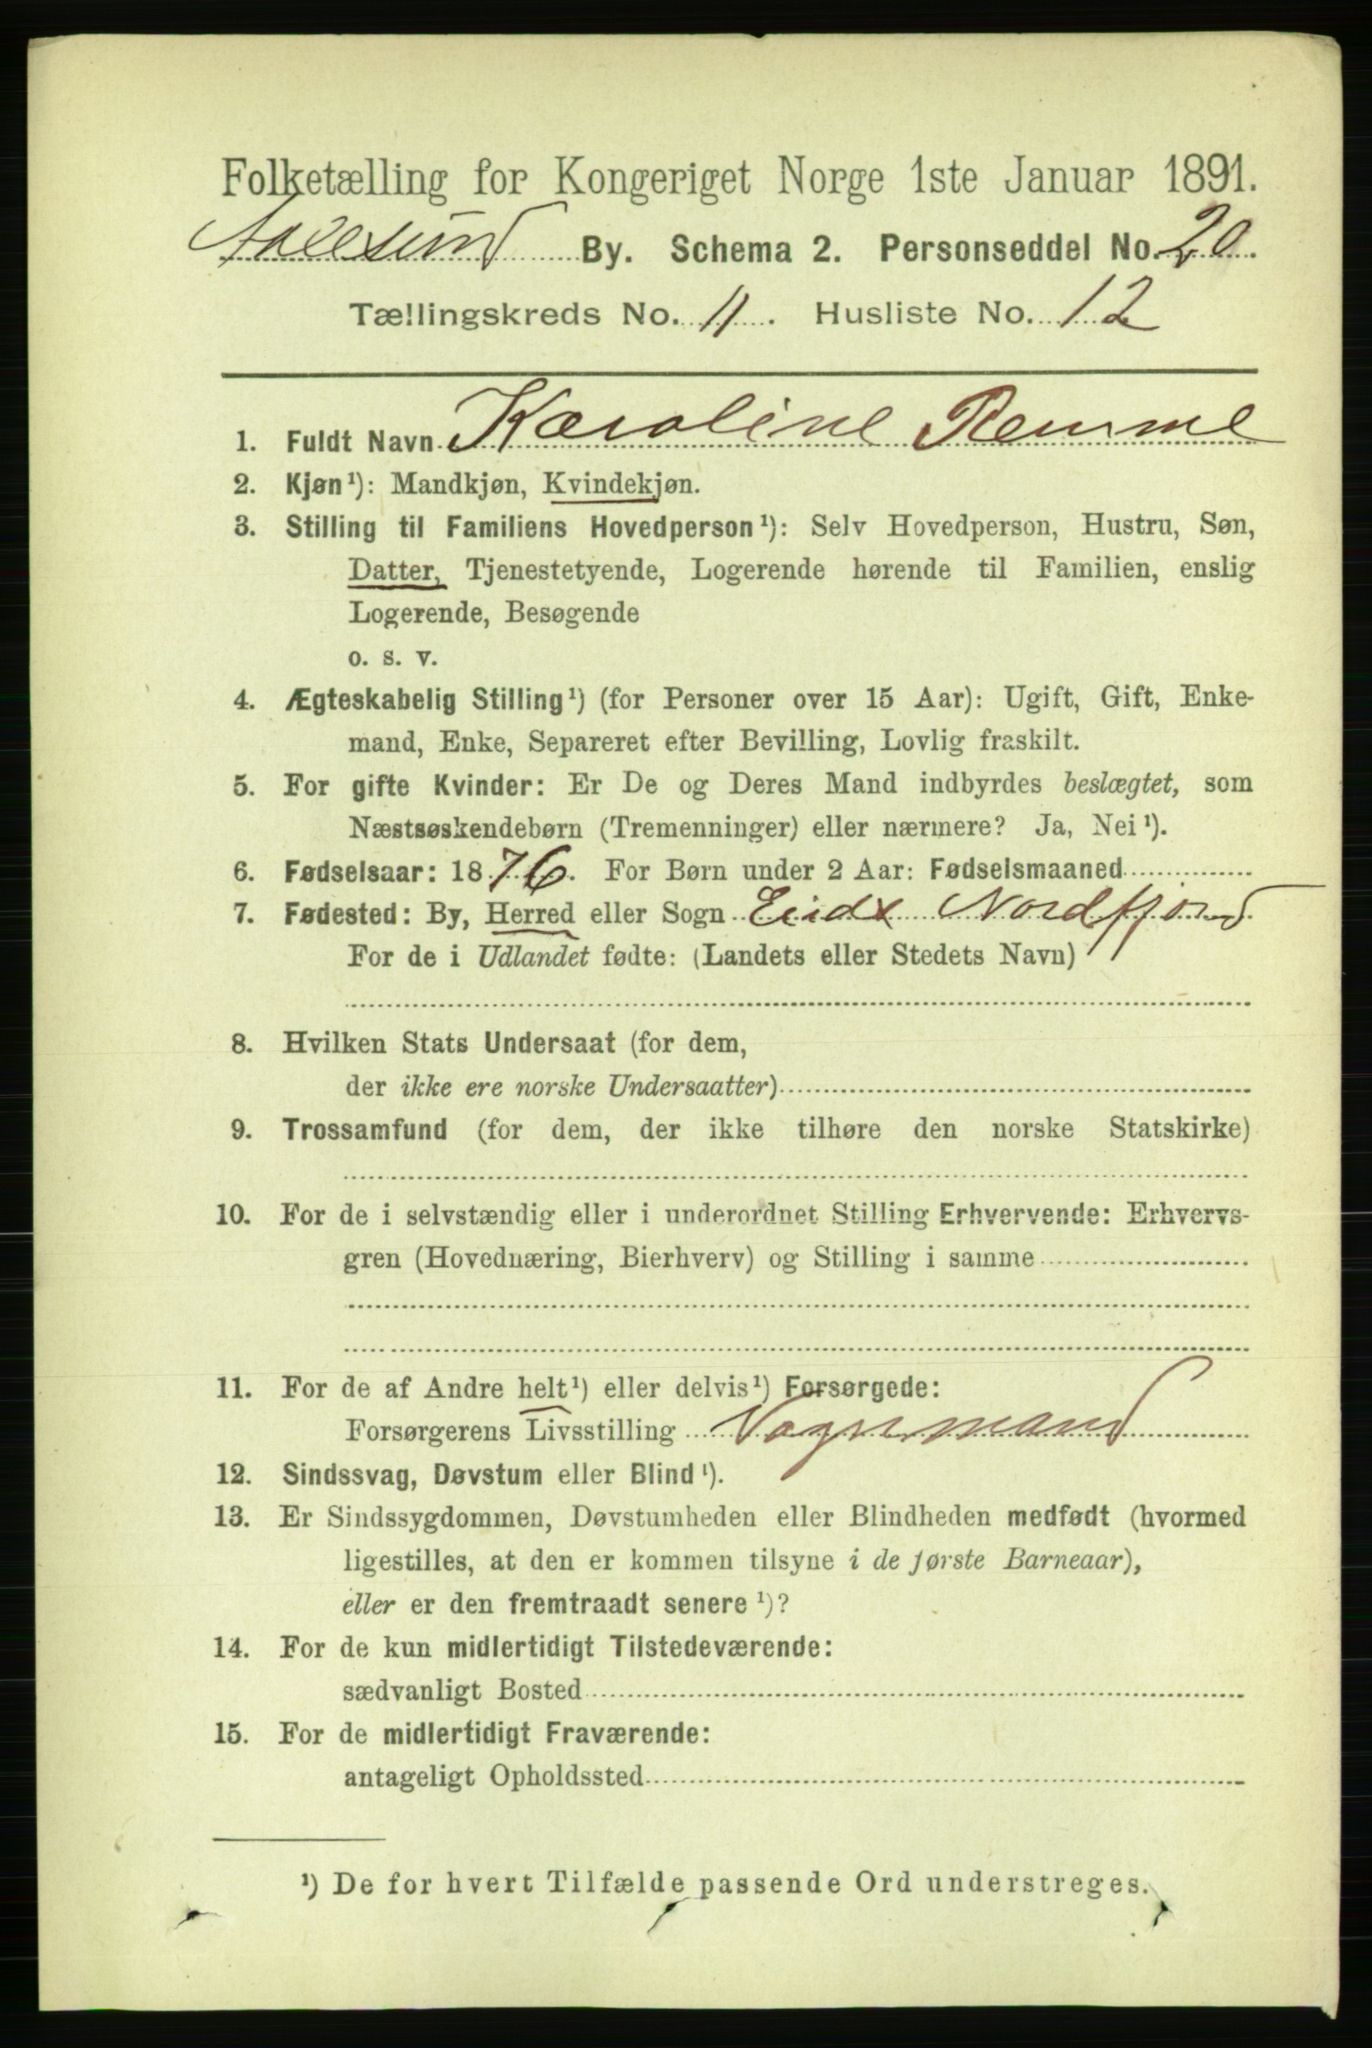 Folketælling for Kongeriget Norge 1ste Januar 1891.
Aalesund By. Schema 2. Personseddel No. 20.
Tællingskreds No. 11. Husliste No. 12
1. Fuldt Navn Karoline Remme
2. Kjøn¹): Mandkjøn, Kvindekjøn.
3. Stilling til Familiens Hovedperson¹): Selv Hovedperson, Hustru, Søn,
Datter, Tjenestetyende, Logerende hørende til Familien, enslig
Logerende, Besøgende
o. s. v.
4. Ægteskabelig Stilling¹) (for Personer over 15 Aar): Ugift, Gift, Enke-
mand, Enke, Separeret efter Bevilling, Lovlig fraskilt.
5. For gifte Kvinder: Er De og Deres Mand indbyrdes beslægtet, som
Næstsøskendebørn (Tremenninger) eller nærmere? Ja, Nei¹).
6. Fødselsaar: 1876. For Børn under 2 Aar: Fødselsmaaned
7. Fødested: By, Herred eller Sogn Eids Nordfjord
For de i Udlandet fødte: (Landets eller Stedets Navn)
8. Hvilken Stats Undersaat (for dem,
der ikke ere norske Undersaatter)
9. Trossamfund (for dem, der ikke tilhøre den norske Statskirke)
10. For de i selvstændig eller i underordnet Stilling Erhvervende: Erhvervs-
gren (Hovednæring, Bierhverv) og Stilling i samme
11. For de af Andre helt¹) eller delvis¹) Forsørgede:
Forsørgerens Livsstilling Vognmand
12. Sindssvag, Døvstum eller Blind¹).
13. Er Sindssygdommen, Døvstumheden eller Blindheden medfødt (hvormed
ligestilles, at den er kommen tilsyne i de første Barneaar),
eller er den fremtraadt senere¹)?
14. For de kun midlertidigt Tilstedeværende:
sædvanligt Bosted
15. For de midlertidigt Fraværende:
antageligt Opholdssted
¹) De for hvert Tilfælde passende Ord understreges.